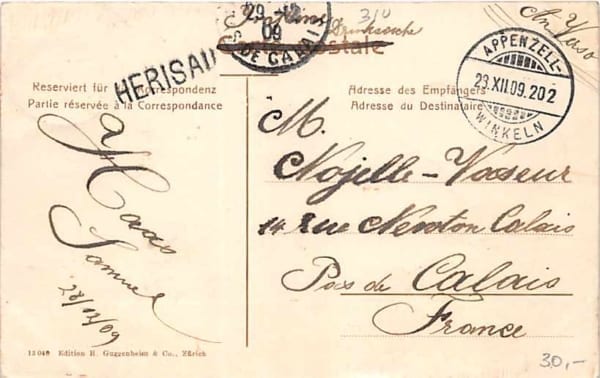 29 - 12
09
S DE CALAI
Drucksache
310
An Verso
Carte postale
HERISAU
APPENZELL-
23 XII.09. 20 2
WINKELN
Reserviert für Correspondenz
Partie réservée à la Correspondance
Adresse des Empfängers
Adresse du Destinataire
a Haas
Samuel
22/12/09
M.
Nojelle-Vasseur
14 Rue Newton Calais
Pas de Calais
France
13049 Edition H. Guggenheim & Co., Zürich
30,-